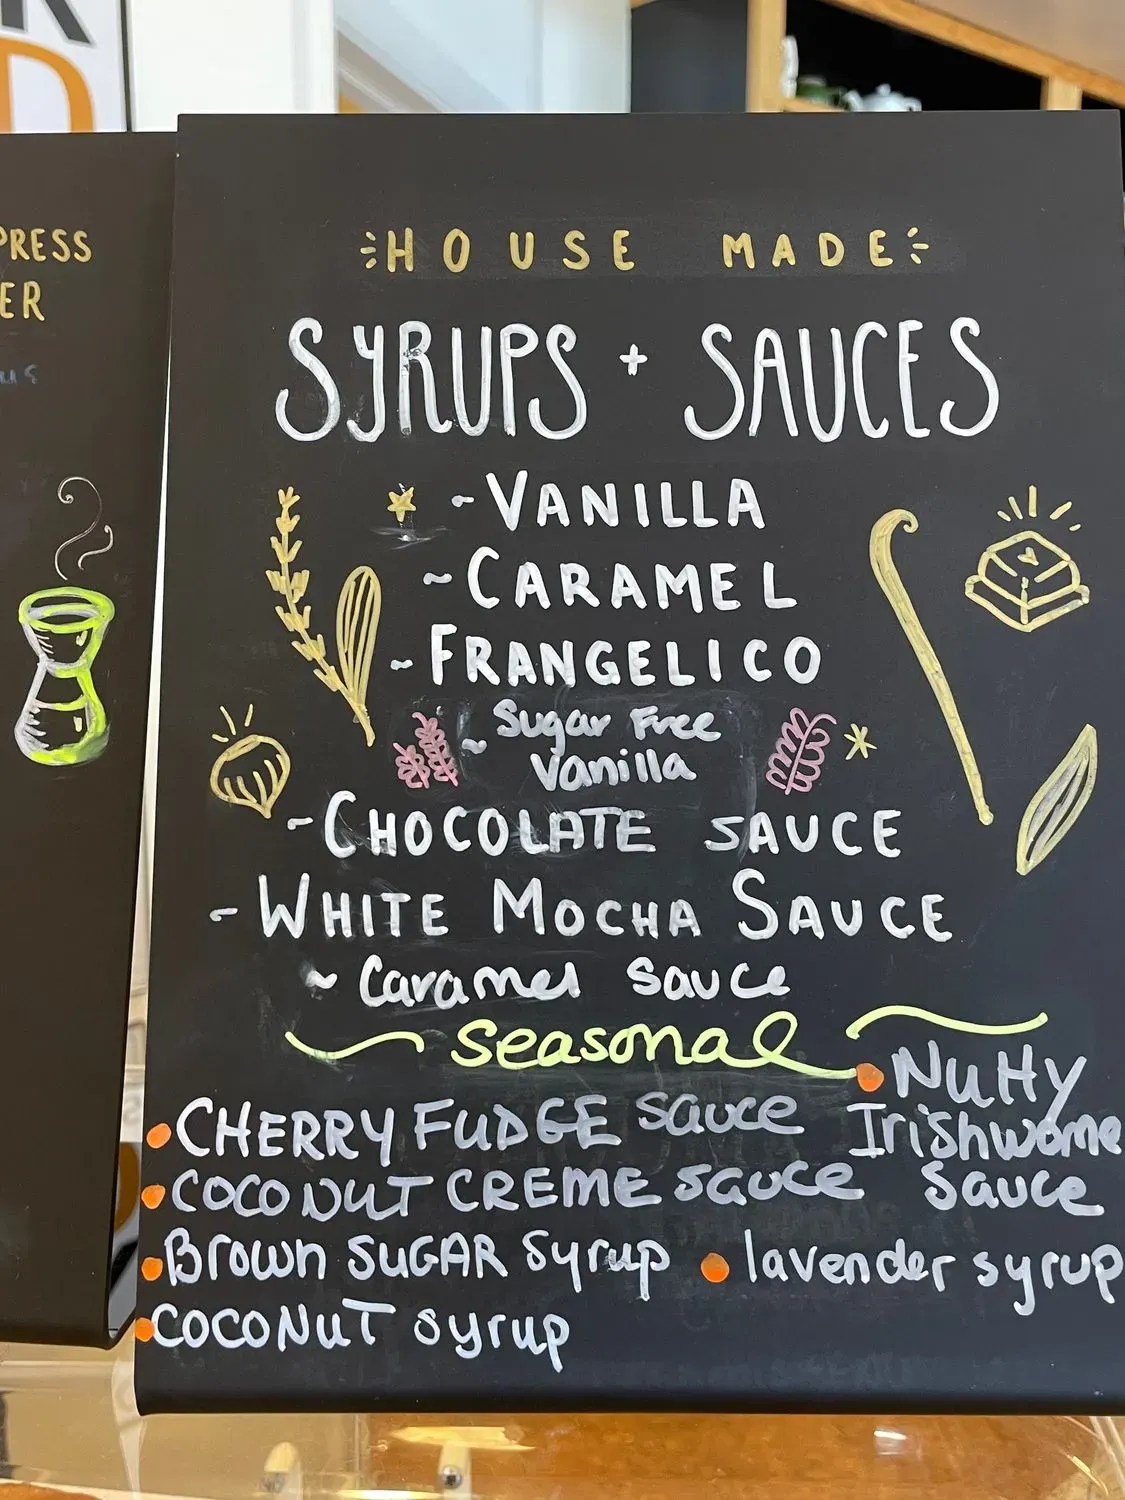 K
D
PRESS
ER
HOUSE MADE
SYRUPS + SAUCES
- VANILLA
~ CARAMEL
~ FRANGELICO
~ Sugar Free
Vanilla
- CHOCOLATE SAUCE
- WHITE MOCHA SAUCE
~ Caramel Sauce
seasonal
• CHERRY FUDGE sauce
• COCONUT CREME sauce
• Brown SUGAR Syrup
• COCONUT syrup
• Nutty
Irishwoma
Sauce
• lavender syrup